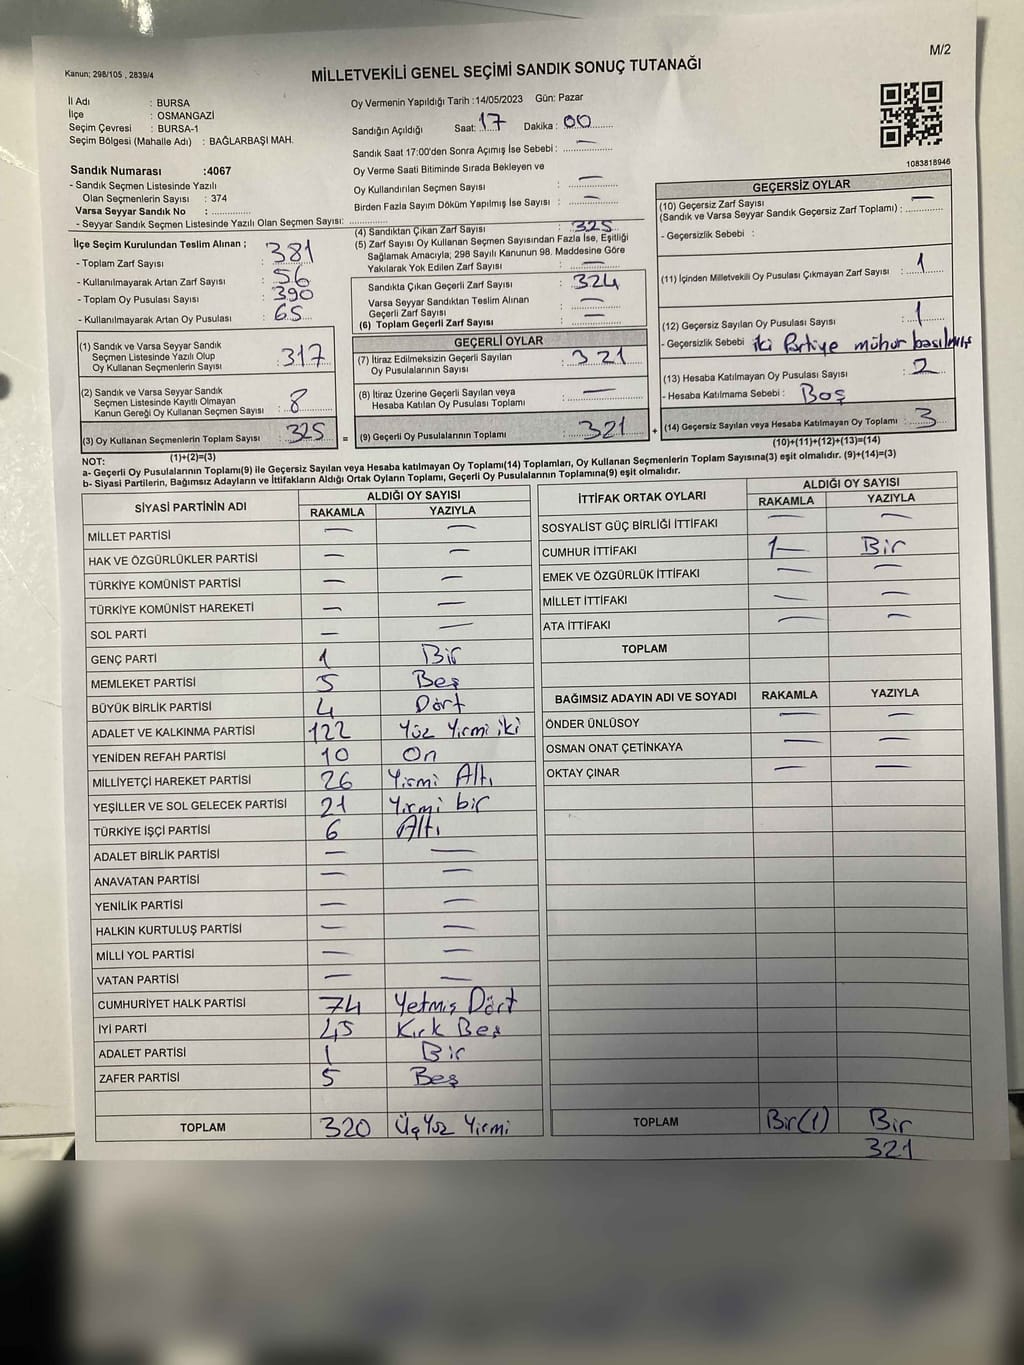 M/2
Kanun; 298/105 , 2839/4
MİLLETVEKİLİ GENEL SEÇİMİ SANDIK SONUÇ TUTANAĞI
İl Adı : BURSA
İlçe : OSMANGAZİ
Seçim Çevresi : BURSA-1
Seçim Bölgesi (Mahalle Adı) : BAĞLARBAŞI MAH.
Oy Vermenin Yapıldığı Tarih :14/05/2023 Gün: Pazar
Sandığın Açıldığı Saat: 17 Dakika : 00
Sandık Saat 17:00'den Sonra Açımış İse Sebebi : —
Oy Verme Saati Bitiminde Sırada Bekleyen ve
Oy Kullandırılan Seçmen Sayısı : —
Birden Fazla Sayım Döküm Yapılmış İse Sayısı : —
1083818946
Sandık Numarası :4067
- Sandık Seçmen Listesinde Yazılı
Olan Seçmenlerin Sayısı : 374
Varsa Seyyar Sandık No :
- Seyyar Sandık Seçmen Listesinde Yazılı Olan Seçmen Sayısı:
İlçe Seçim Kurulundan Teslim Alınan ;
- Toplam Zarf Sayısı : 381
- Kullanılmayarak Artan Zarf Sayısı : 56
- Toplam Oy Pusulası Sayısı : 390
- Kullanılmayarak Artan Oy Pusulası : 65
(1) Sandık ve Varsa Seyyar Sandık
Seçmen Listesinde Yazılı Olup
Oy Kullanan Seçmenlerin Sayısı : 317
(2) Sandık ve Varsa Seyyar Sandık
Seçmen Listesinde Kayıtlı Olmayan
Kanun Gereği Oy Kullanan Seçmen Sayısı : 8
(3) Oy Kullanan Seçmenlerin Toplam Sayısı : 325
(1)+(2)=(3)
(4) Sandıktan Çıkan Zarf Sayısı : 325
(5) Zarf Sayısı Oy Kullanan Seçmen Sayısından Fazla İse, Eşitliği
Sağlamak Amacıyla; 298 Sayılı Kanunun 98. Maddesine Göre
Yakılarak Yok Edilen Zarf Sayısı : —
Sandıkta Çıkan Geçerli Zarf Sayısı : 324
Varsa Seyyar Sandıktan Teslim Alınan
Geçerli Zarf Sayısı : —
(6) Toplam Geçerli Zarf Sayısı : —
GEÇERLİ OYLAR
(7) İtiraz Edilmeksizin Geçerli Sayılan
Oy Pusulalarının Sayısı : 321
(8) İtiraz Üzerine Geçerli Sayılan veya
Hesaba Katılan Oy Pusulası Toplamı : —
= (9) Geçerli Oy Pusulalarının Toplamı : 321 +
GEÇERSİZ OYLAR
(10) Geçersiz Zarf Sayısı
(Sandık ve Varsa Seyyar Sandık Geçersiz Zarf Toplamı) : —
- Geçersizlik Sebebi :
(11) İçinden Milletvekili Oy Pusulası Çıkmayan Zarf Sayısı : 1
(12) Geçersiz Sayılan Oy Pusulası Sayısı : 1
- Geçersizlik Sebebi : iki Partiye mühür basılmış
(13) Hesaba Katılmayan Oy Pusulası Sayısı : 2
- Hesaba Katılmama Sebebi : Boş
(14) Geçersiz Sayılan veya Hesaba Katılmayan Oy Toplamı : 3
(10)+(11)+(12)+(13)=(14)
NOT:
a- Geçerli Oy Pusulalarının Toplamı(9) ile Geçersiz Sayılan veya Hesaba katılmayan Oy Toplamı(14) Toplamları, Oy Kullanan Seçmenlerin Toplam Sayısına(3) eşit olmalıdır. (9)+(14)=(3)
b- Siyasi Partilerin, Bağımsız Adayların ve İttifakların Aldığı Ortak Oyların Toplamı, Geçerli Oy Pusulalarının Toplamına(9) eşit olmalıdır.
SİYASİ PARTİNİN ADI ALDIĞI OY SAYISI
RAKAMLA YAZIYLA
MİLLET PARTİSİ — —
HAK VE ÖZGÜRLÜKLER PARTİSİ — —
TÜRKİYE KOMÜNİST PARTİSİ — —
TÜRKİYE KOMÜNİST HAREKETİ — —
SOL PARTİ — —
GENÇ PARTİ 1 Bir
MEMLEKET PARTİSİ 5 Beş
BÜYÜK BİRLİK PARTİSİ 4 Dört
ADALET VE KALKINMA PARTİSİ 122 Yüz Yirmi iki
YENİDEN REFAH PARTİSİ 10 On
MİLLİYETÇİ HAREKET PARTİSİ 26 Yirmi Altı
YEŞİLLER VE SOL GELECEK PARTİSİ 21 Yirmi bir
TÜRKİYE İŞÇİ PARTİSİ 6 Altı
ADALET BİRLİK PARTİSİ — —
ANAVATAN PARTİSİ — —
YENİLİK PARTİSİ — —
HALKIN KURTULUŞ PARTİSİ — —
MİLLİ YOL PARTİSİ — —
VATAN PARTİSİ — —
CUMHURİYET HALK PARTİSİ 74 Yetmiş Dört
İYİ PARTİ 45 Kırk Beş
ADALET PARTİSİ 1 Bir
ZAFER PARTİSİ 5 Beş
TOPLAM 320 Üç Yüz Yirmi
İTTİFAK ORTAK OYLARI ALDIĞI OY SAYISI
RAKAMLA YAZIYLA
SOSYALİST GÜÇ BİRLİĞİ İTTİFAKI — —
CUMHUR İTTİFAKI 1— Bir
EMEK VE ÖZGÜRLÜK İTTİFAKI — —
MİLLET İTTİFAKI — —
ATA İTTİFAKI — —
TOPLAM
BAĞIMSIZ ADAYIN ADI VE SOYADI RAKAMLA YAZIYLA
ÖNDER ÜNLÜSOY — —
OSMAN ONAT ÇETİNKAYA — —
OKTAY ÇINAR — —
TOPLAM Bir(1) Bir
321